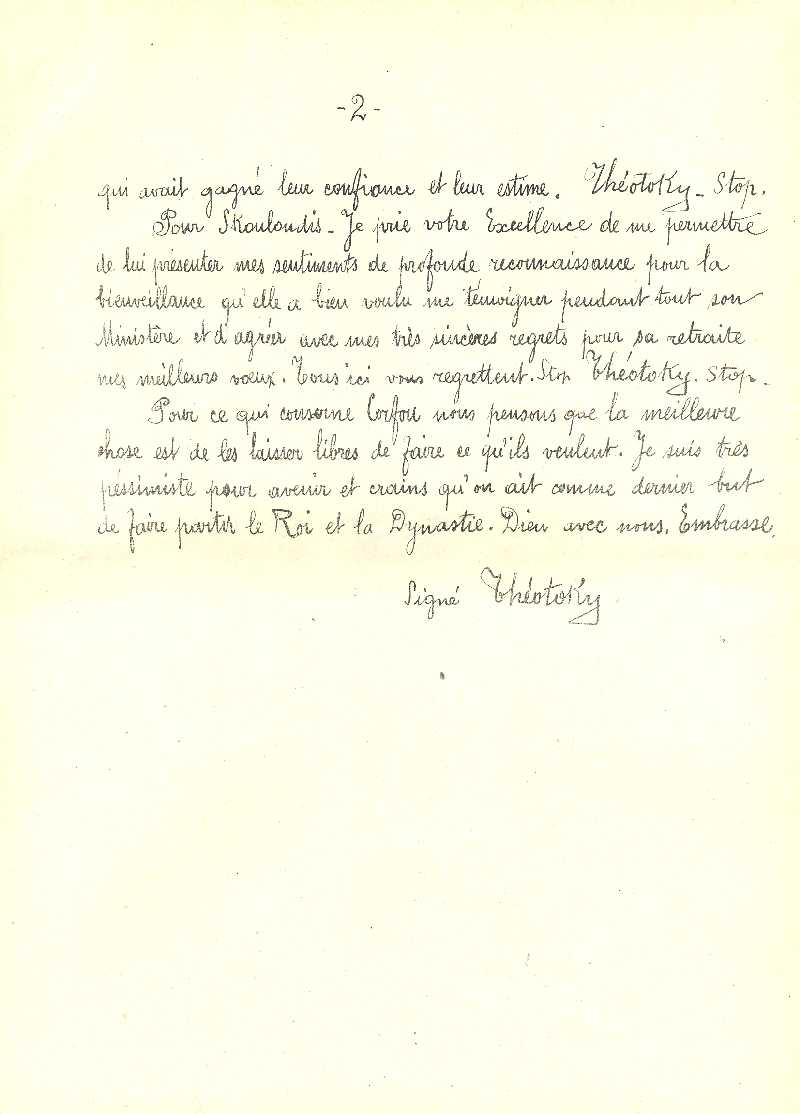 -2-
qui avait gagné leur confiance et leur estime. Théotoky - Stop.
Pour Skouloudis - Je prie votre Excellence de me permettre
de lui présenter mes sentiments de profonde reconnaissance pour la
bienveillance qu'elle a bien voulu me témoigner pendant tout son
Ministère et d'agréer avec mes très sincères regrets pour sa retraite
mes meilleurs vœux. Tous ici vous regrettent. Stop Théotoky. Stop.
Pour ce qui conserne Corfou nous pensons que la meilleure
chose est de les laisser libres de faire ce qu'ils veulent. Je suis très
pessimiste pour avenir et crains qu'on ait comme dernier but
de faire partir le Roi et la Dynastie. Dieu avec nous. Embrasse.
Signé Théotoky